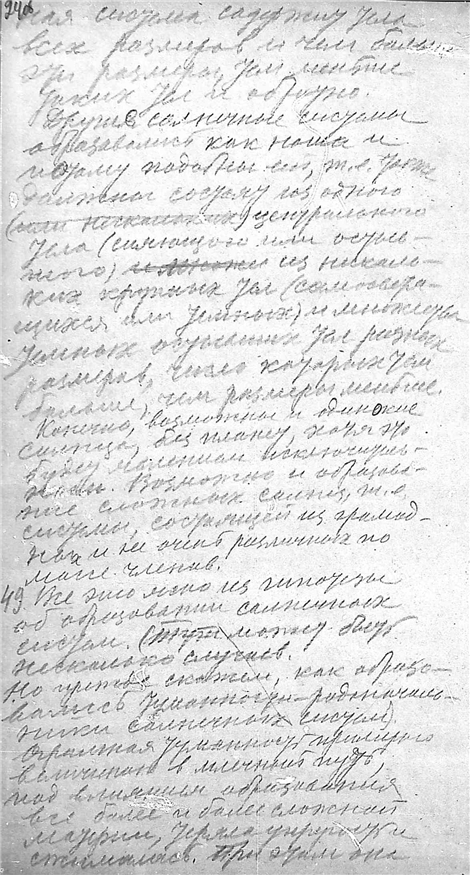 240
ная система содержит тела
всех размеров и чем больше
эти размеры, тем меньше
таких тел и обратно.
Другие солнечные системы
образовались как наша и
потому подобны ей, т.е. также
должны состоять из одного
(или нескольких) центрального
тела (сияющего или остыв-
шего) из несколь-
ких крупных тел (самосветя-
щихся или темных) и множества
темных остывших тел разных
размеров, число которых тем
больше, чем размеры меньше.
Конечно, возможны и одинокие
солнца, без планет, хотя это
будет маленьким исключитель-
Возможно и образова-
ние сложных солнц, т.е.
системы, состоящей из громад-
ных и не очень различных по
массе членов.
49. Все это ясно из гипотезы
об образовании солнечных
систем. (Тут может быть
несколько случаев.
Но прежде скажем, как образо-
вались туманности – родоначаль-
ники солнечных систем).
Огромная туманность
величиною в млечный путь,
под влиянием образования
все более и более сложной
материи, теряла упругость и
сжималась. При этом она